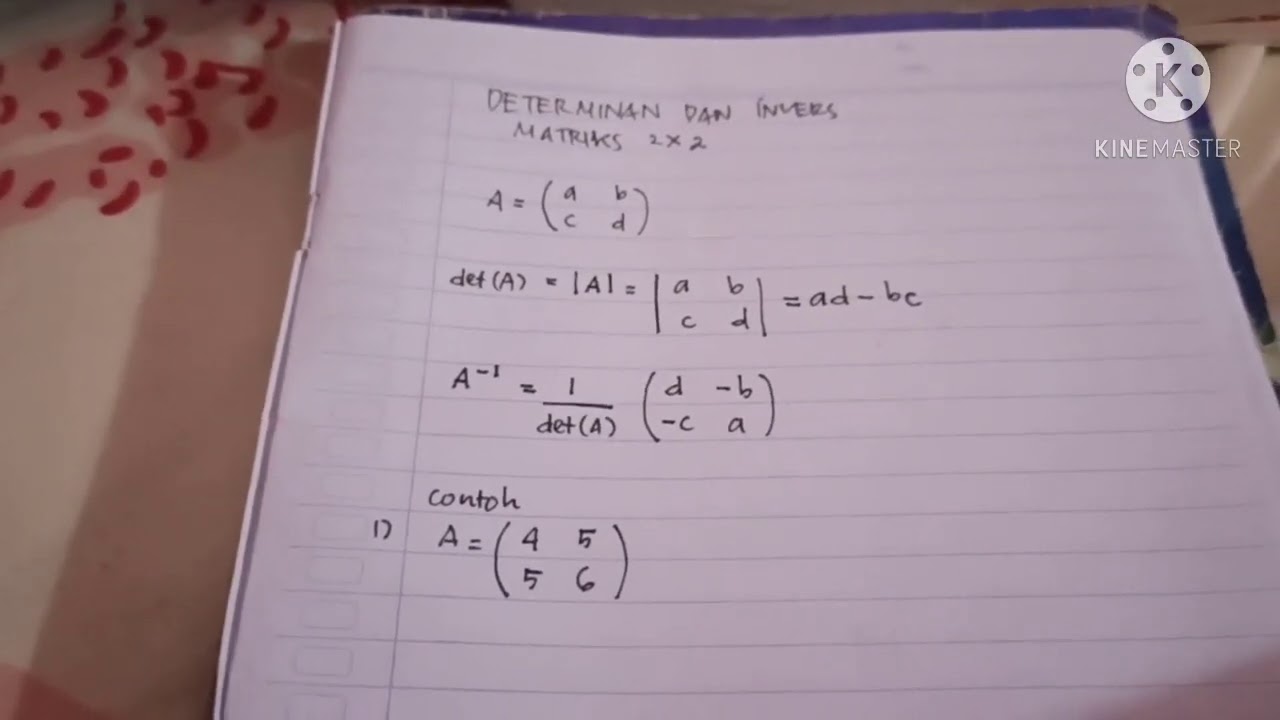 DETERMINAN DAN INVERS
MATRIKS 2 × 2
A = (a b
c d)
det (A) = |A| = |a b
c d| = ad - bc
A⁻¹ = 1/det (A) (d -b
-c a)
contoh
1) A = (4 5
5 6)
K
KINEMASTER